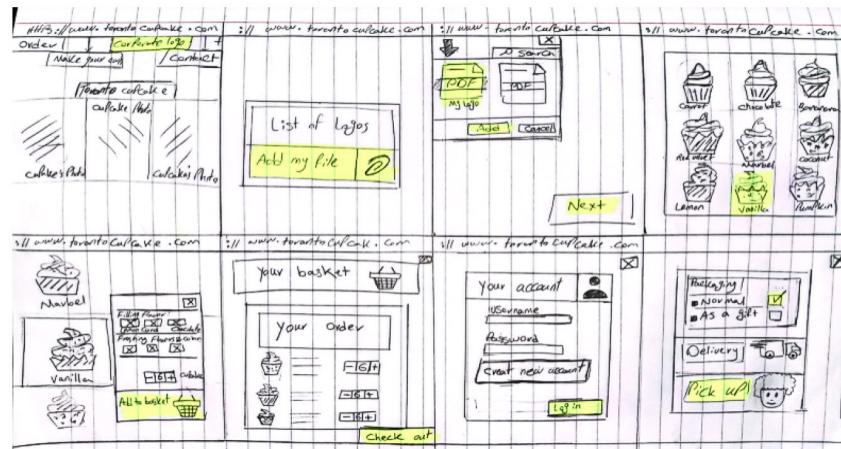 http://www.toronto cupcake.com
Order
Corporate logo
Make your
Contact
Toronto cupcake
cupcake Photo
cupcake's Photo
cupcake's Photo
:// www.toronto cupcake.com
List of Logos
Add my file
:// www. toronto cupcake. com
search
PDF
PDF
My logo
Add
Cancel
Next
:// www.toronto cupcake. com
Carrot
chocolate
Red velvet
Marbel
coconut
Lemon
Vanilla
Pumpkin
:// www. toronto cupcake .com
Marbel
Vanilla
Filling Flavor
chocolate
-6+
Add to basket
:// www. toronto cupcake. com
your basket
Your order
-6+
-6+
-6+
Check out
:// www. toronto cupcake .com
Your account
username
Password
Creat new account
Log in
Packaging
Normal
As a gift
Delivery
Pick up